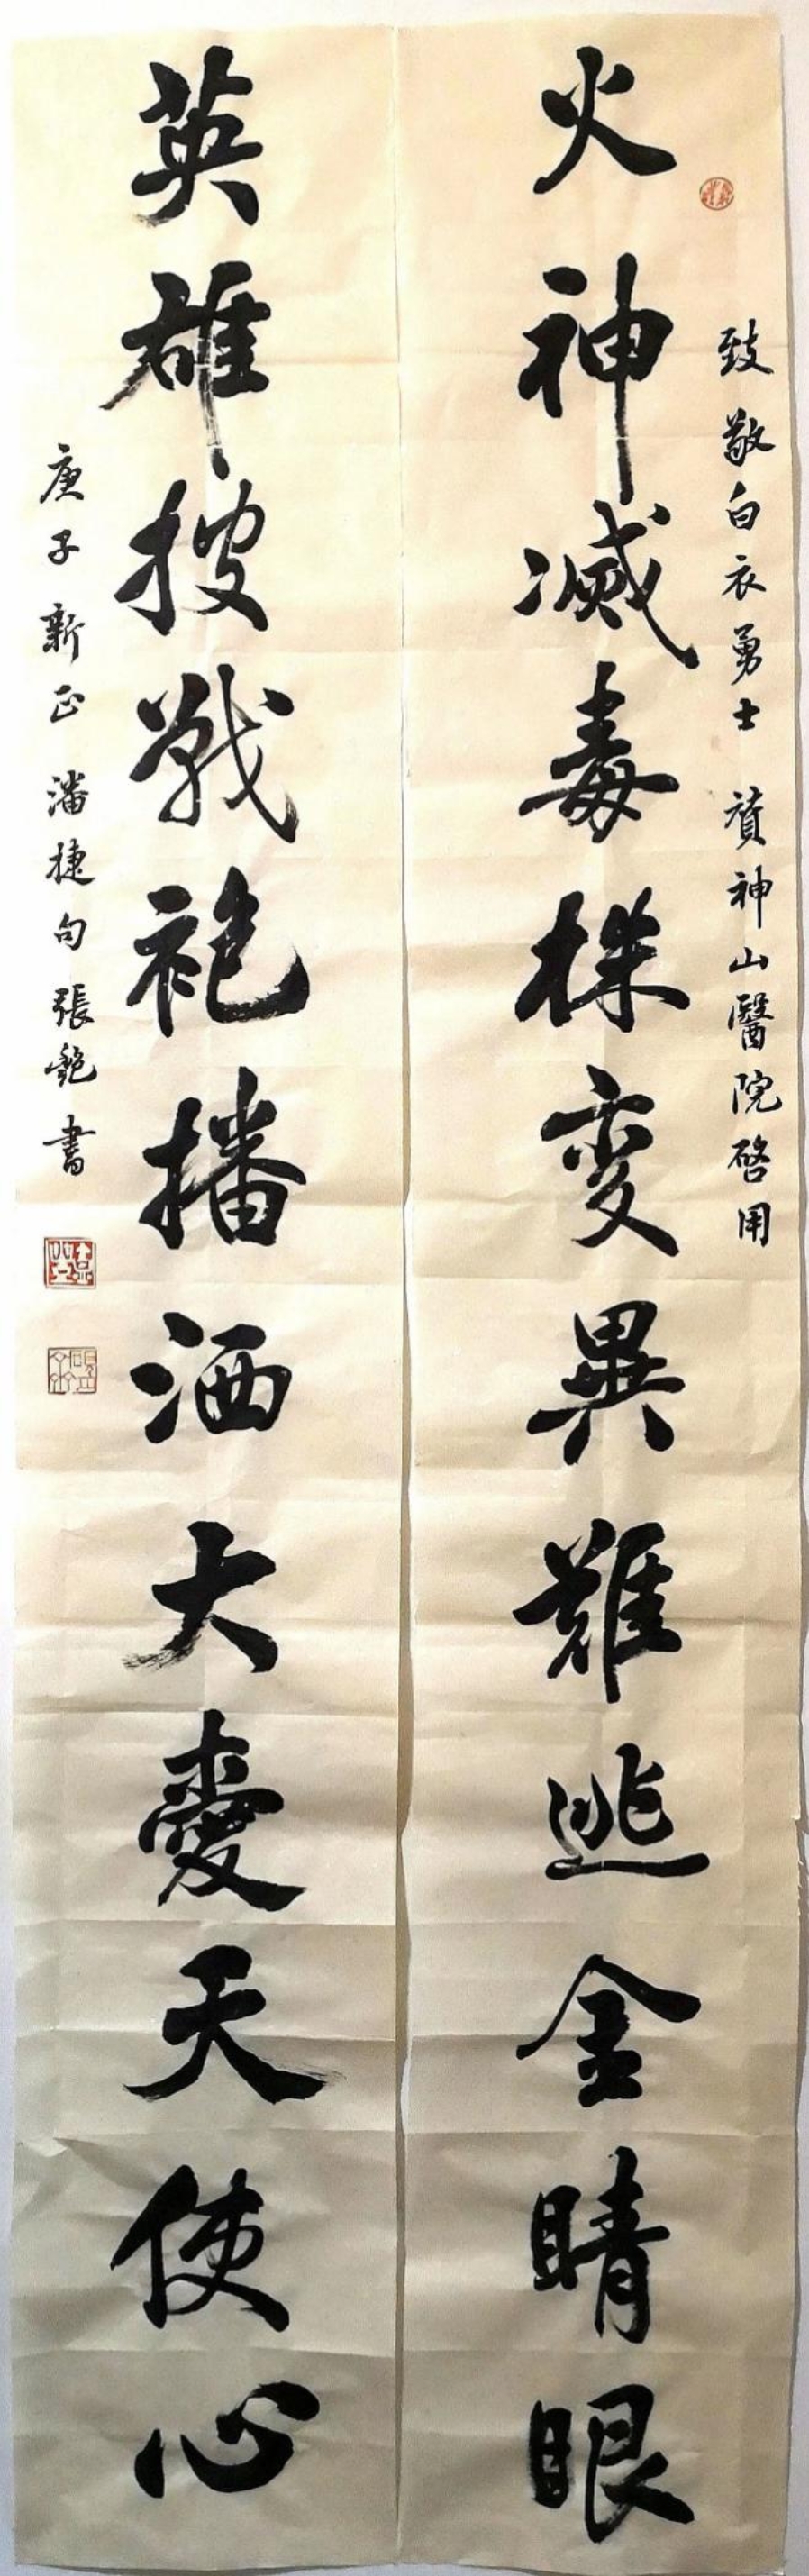 致敬白衣勇士 賀神山醫院啓用
火神滅毒株変異難逃金睛眼
英雄披戰袍播洒大愛天使心
庚子新正 潘捷句 張艷書